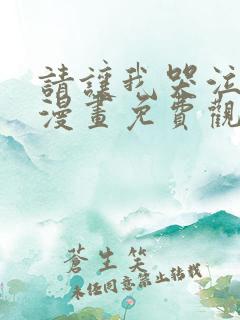 請讓我哭泣
漫畫免費觀
蒼生笑
未經同意禁止轉載